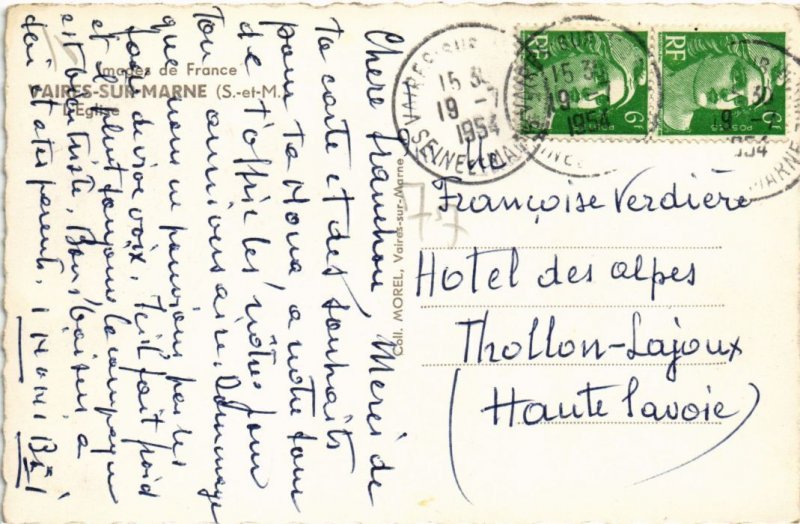 Images de France
VAIRES-SUR-MARNE (S.-et-M.)
L'Eglise
Chère Françhou, Merci de
ta carte et des souhaits
pour ta Nona, à notre tour
de t'offrir les nôtres pour
ton anniversaire, Dommage
que nous ne pouvions pas les
faire de vive voix. Ici il fait froid
et il pleut toujours la campagne
est bien triste, Bons baisers à
toi et à tes parents.
Coll. MOREL, Vaires-sur-Marne
77
VAIRES-SUR
15 3
19 - 7
1954
SEINE-ET-MARNE
RF
6f
POSTES
RF
6f
POSTES
Mlle
Françoise Verdière
Hotel des alpes
Thollon-Lajoux
(Haute Savoie)